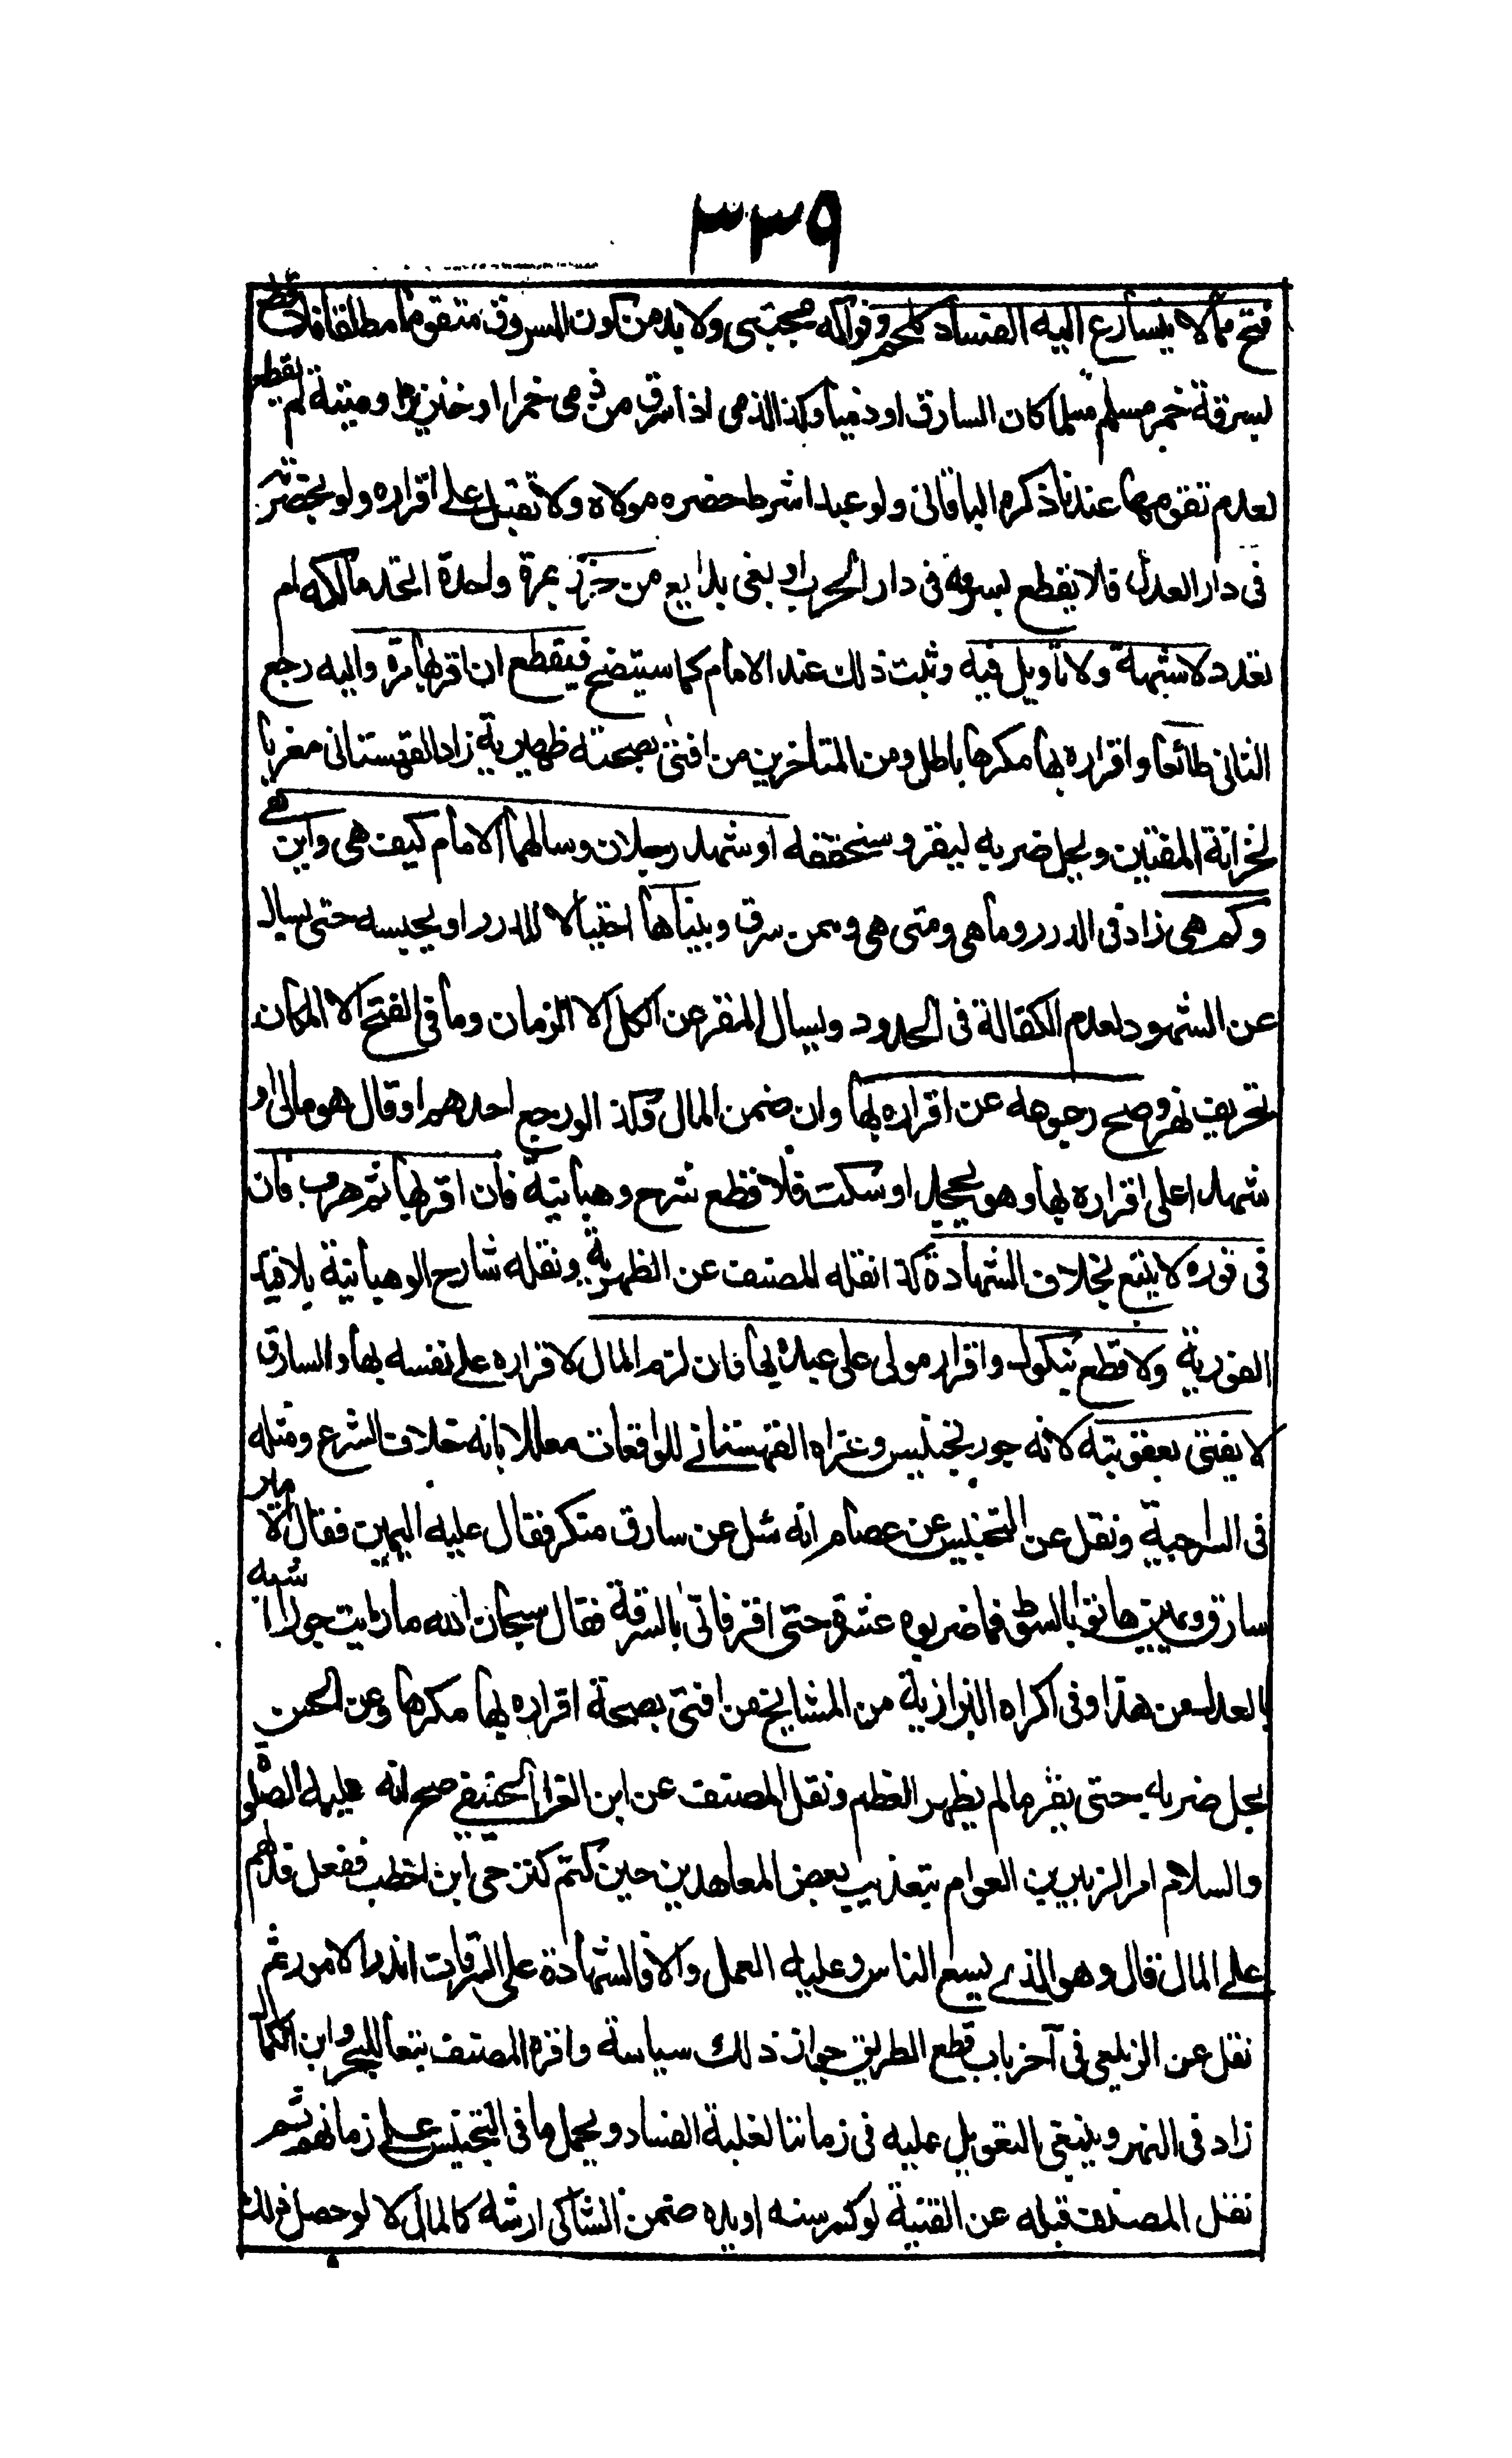 ٣٣٩
فتح مما لا يتسارع اليه الفساد كلحم وفواكه مجتبى ولا بد من كون المسروق متقوما مطلقا فلا قطع
بسرقة خمر مسلم مسلما كان السارق او ذميا وكذا الذمى اذا سرق من ذمى خمرا او خنزيرا وميتة لم يقطع
لعدم تقومها عندنا ذكره الباقانى ولو عبدا شرط حضره مولاه ولا تقبل على اقراره ولو بحضرته
فى دار العدل فلا يقطع بسرقة فى دار الحرب او بغى بدايع من حرز بمرة واحدة اتحد مالكه ام
تعدد لا شبهة ولا تاويل فيه وثبت ذلك عند الامام كما سيتضح فيقطع ان اقر بها مرة واليه رجع
الثانى طائعا واقراره بها مكرها باطل ومن المتاخرين من افتى بصحته ظهيرية زاد القهستانى معزيا
لخزانة المفتين ويحل ضربه ليقر وسنحققه او شهد رجلان وسالهما الامام كيف هى واين هى
وكم هى زاد فى الدرر وما هى ومتى هى وممن سرق وبيناها احتيالا للدرر او يحبسه حتى يسال
عن الشهود لعدم الكفالة فى الحدود ويسال المقر عن الكل الا الزمان وما فى الفتح الا المكان
تحريف نهر وصح رجوعه عن اقراره بها وان ضمن المال وكذا لو رجع احدهم او قال هو مالى او
شهدا على اقراره بها وهو يجحد او سكت فلا قطع شرح وهبانية فان اقر بها ثم هرب فان
فى فوره لا يتبع بخلاف الشهادة كذا نقله المصنف عن الظهيرية ونقله شارح الوهبانية بلا قيد
الفورية ولا قطع بنكول واقرار مولى على عبده بها فان لزم المال لاقراره على نفسه بها والسارق
لا يفتى بعقوبته لانه جور تجنيس وعزاه القهستانى للواقعات معللا بانه خلاف الشرع ومثله
فى السراجية ونقل عن التجنيس عن عصام انه سئل عن سارق منكر فقال عليه اليمين فقال الامير
سارق ويمين هاتوا بالسوط فما ضربوه عشرة حتى اقر فاتى بالسرقة فقال سبحان الله ما رايت جورا اشبه
بالعدل من هذا وفى اكراه البزازية من المشايخ من افتى بصحة اقراره بها مكرها وعن الحسن
يحل ضربه حتى يقر ما لم يظهر العظم ونقل المصنف عن ابن العز الحنفى صح انه عليه الصلوة
والسلام امر الزبير بن العوام بتعذيب بعض المعاهدين حين كتم كنز حى ابن اخطب ففعل فدلهم
على المال قال وهو الذى يسع الناس وعليه العمل والا فالشهادة على السرقات اندر الامور ثم
نقل عن الزيلعى فى آخر باب قطع الطريق جواز ذلك سياسة واقره المصنف تبعا للبحر وابن الكمال
زاد فى النهر وينبغى التعويل عليه فى زماننا لغلبة الفساد ويحمل ما فى التجنيس على زمانهم ثم
نقل المصنف قبله عن القنية لو كسر سنه او يده ضمن الشاكى ارشه كالمال لا لو حصل ذلك